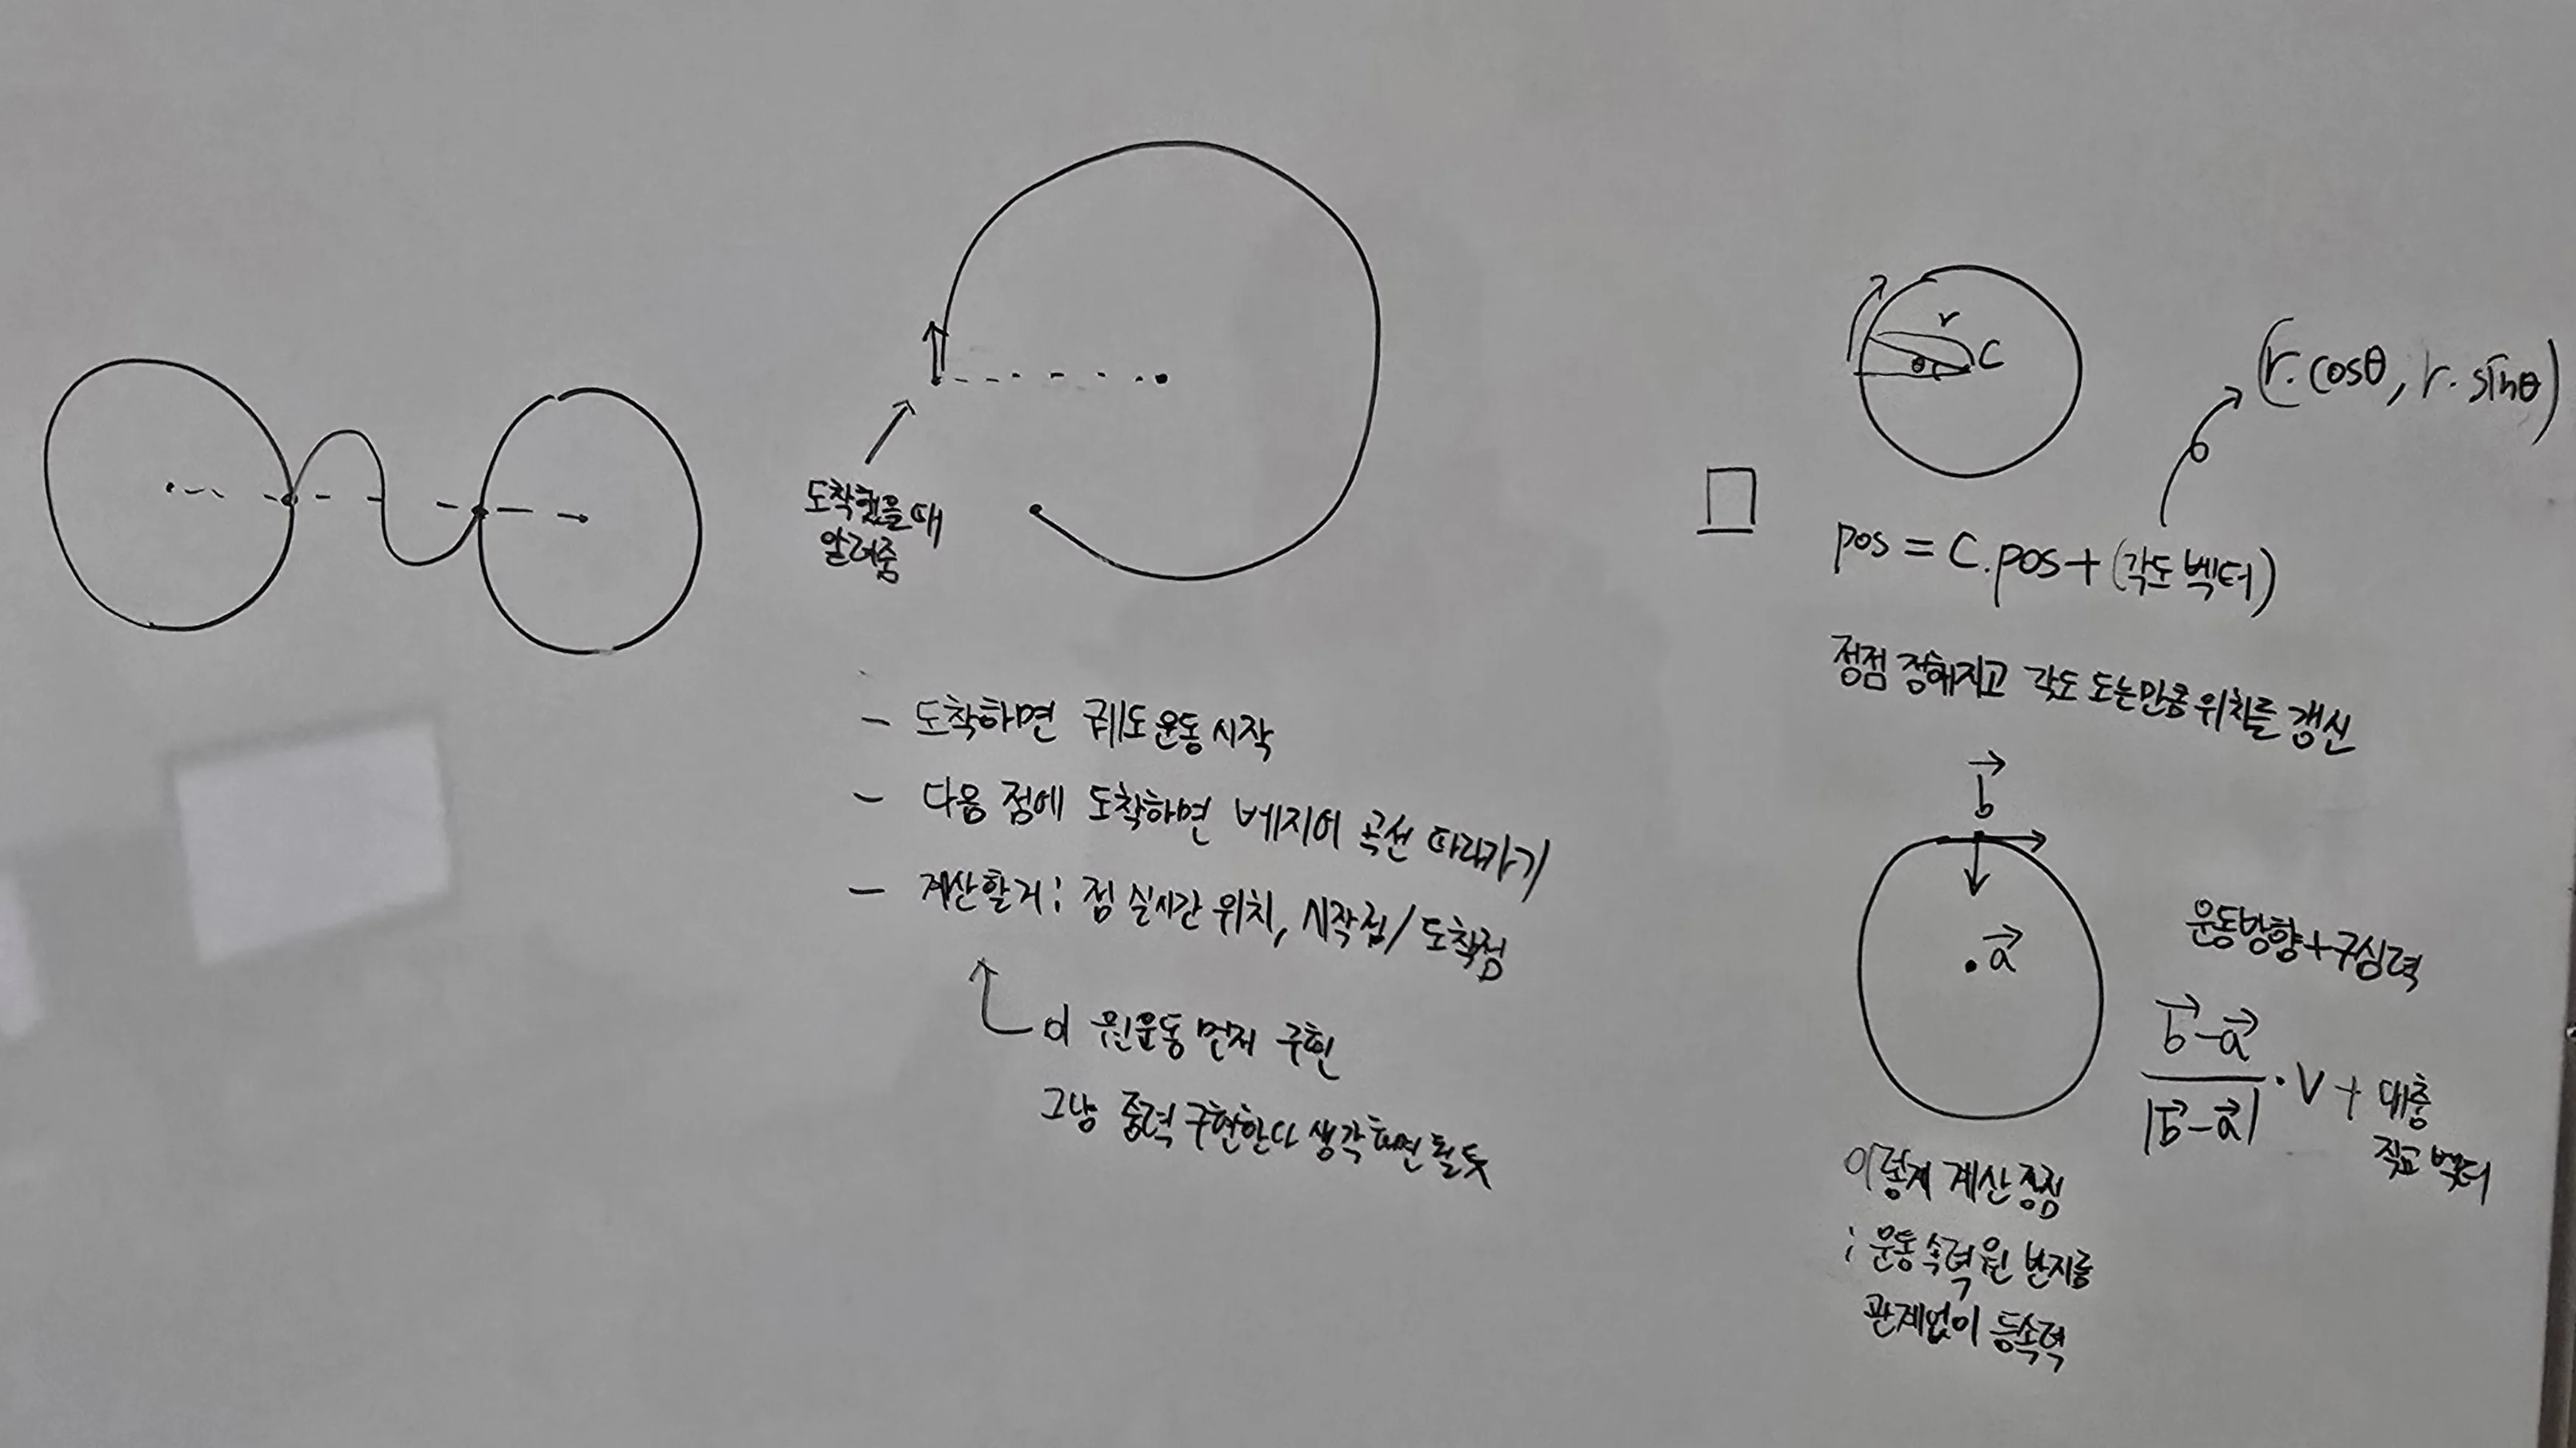 도착했을때
알려줌
- 도착하면 궤도운동 시작
- 다음 점에 도착하면 베지어 곡선 따라가기
- 계산할거 : 점 실시간 위치, 시작점/도착점
이 원운동 먼저 구현
그냥 중력 구현한다 생각하면 될듯
r
θ
C
(r·cosθ, r·sinθ)
pos = C.pos + (각도 벡터)
정점 정해지고 각도 도는만큼 위치를 갱신
b⃗
a⃗
운동방향+구심력
(b⃗-a⃗)/|b⃗-a⃗| · V + 대충
직교 벡터
이렇게 계산 장점
: 운동 속력 원 반지름
관계없이 등속력